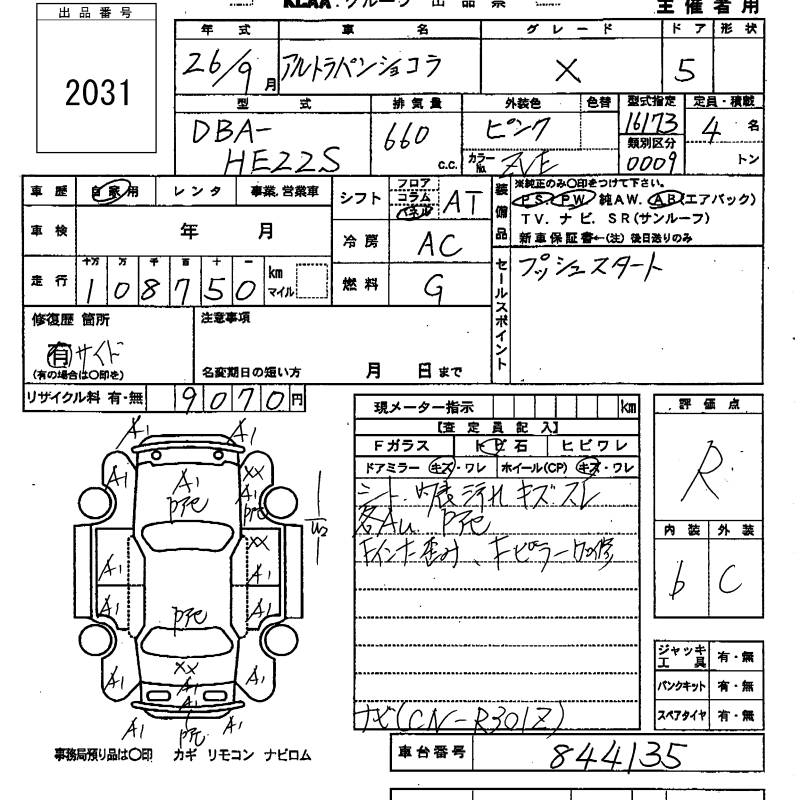 KCAA グループ 出品票
主催者用
出品番号
2031
年式 車名 グレード ドア 形状
26/9月 アルトラパンショコラ X 5
型式 排気量 外装色 色替 型式指定 定員・積載
DBA-HE22S 660 c.c. ピンク 16173 4名
カラーNo. ZVE 類別区分 0009 トン
車歴 自家用 レンタ 事業,営業車
シフト フロア コラム パネル AT
装備品 ※純正のみ○印をつけて下さい。
PS. PW. 純AW. AB(エアバック)
TV. ナビ. SR(サンルーフ)
新車保証書←(注)後日送りのみ
車検 年 月
冷房 AC
走行 十万 万 千 百 十 一
108750 km マイル
燃料 G
セールスポイント
プッシュスタート
修復歴 箇所
有 サイド
(有の場合は○印を)
注意事項
名変期日の短い方 月 日まで
リサイクル料 有・無 9070円
現メーター指示 km
【査定員記入】
Fガラス トビ石 ヒビワレ
ドアミラー キズ・ワレ ホイール(CP) キズ・ワレ
シート、内張汚れ キズ スレ
各AU PTE
ナビ(CN-R301Z)
評価点
R
内装 外装
b C
ジャッキ工具 有・無
パンクキット 有・無
スペアタイヤ 有・無
A1 A1
A1 XX
PTE PTE
U2
XX
A1 A1
A1 A1
PTE
XX
A1 A1 A1
A1
A1 A1
PTE
事務局預り品は○印 カギ リモコン ナビロム
車台番号 844135